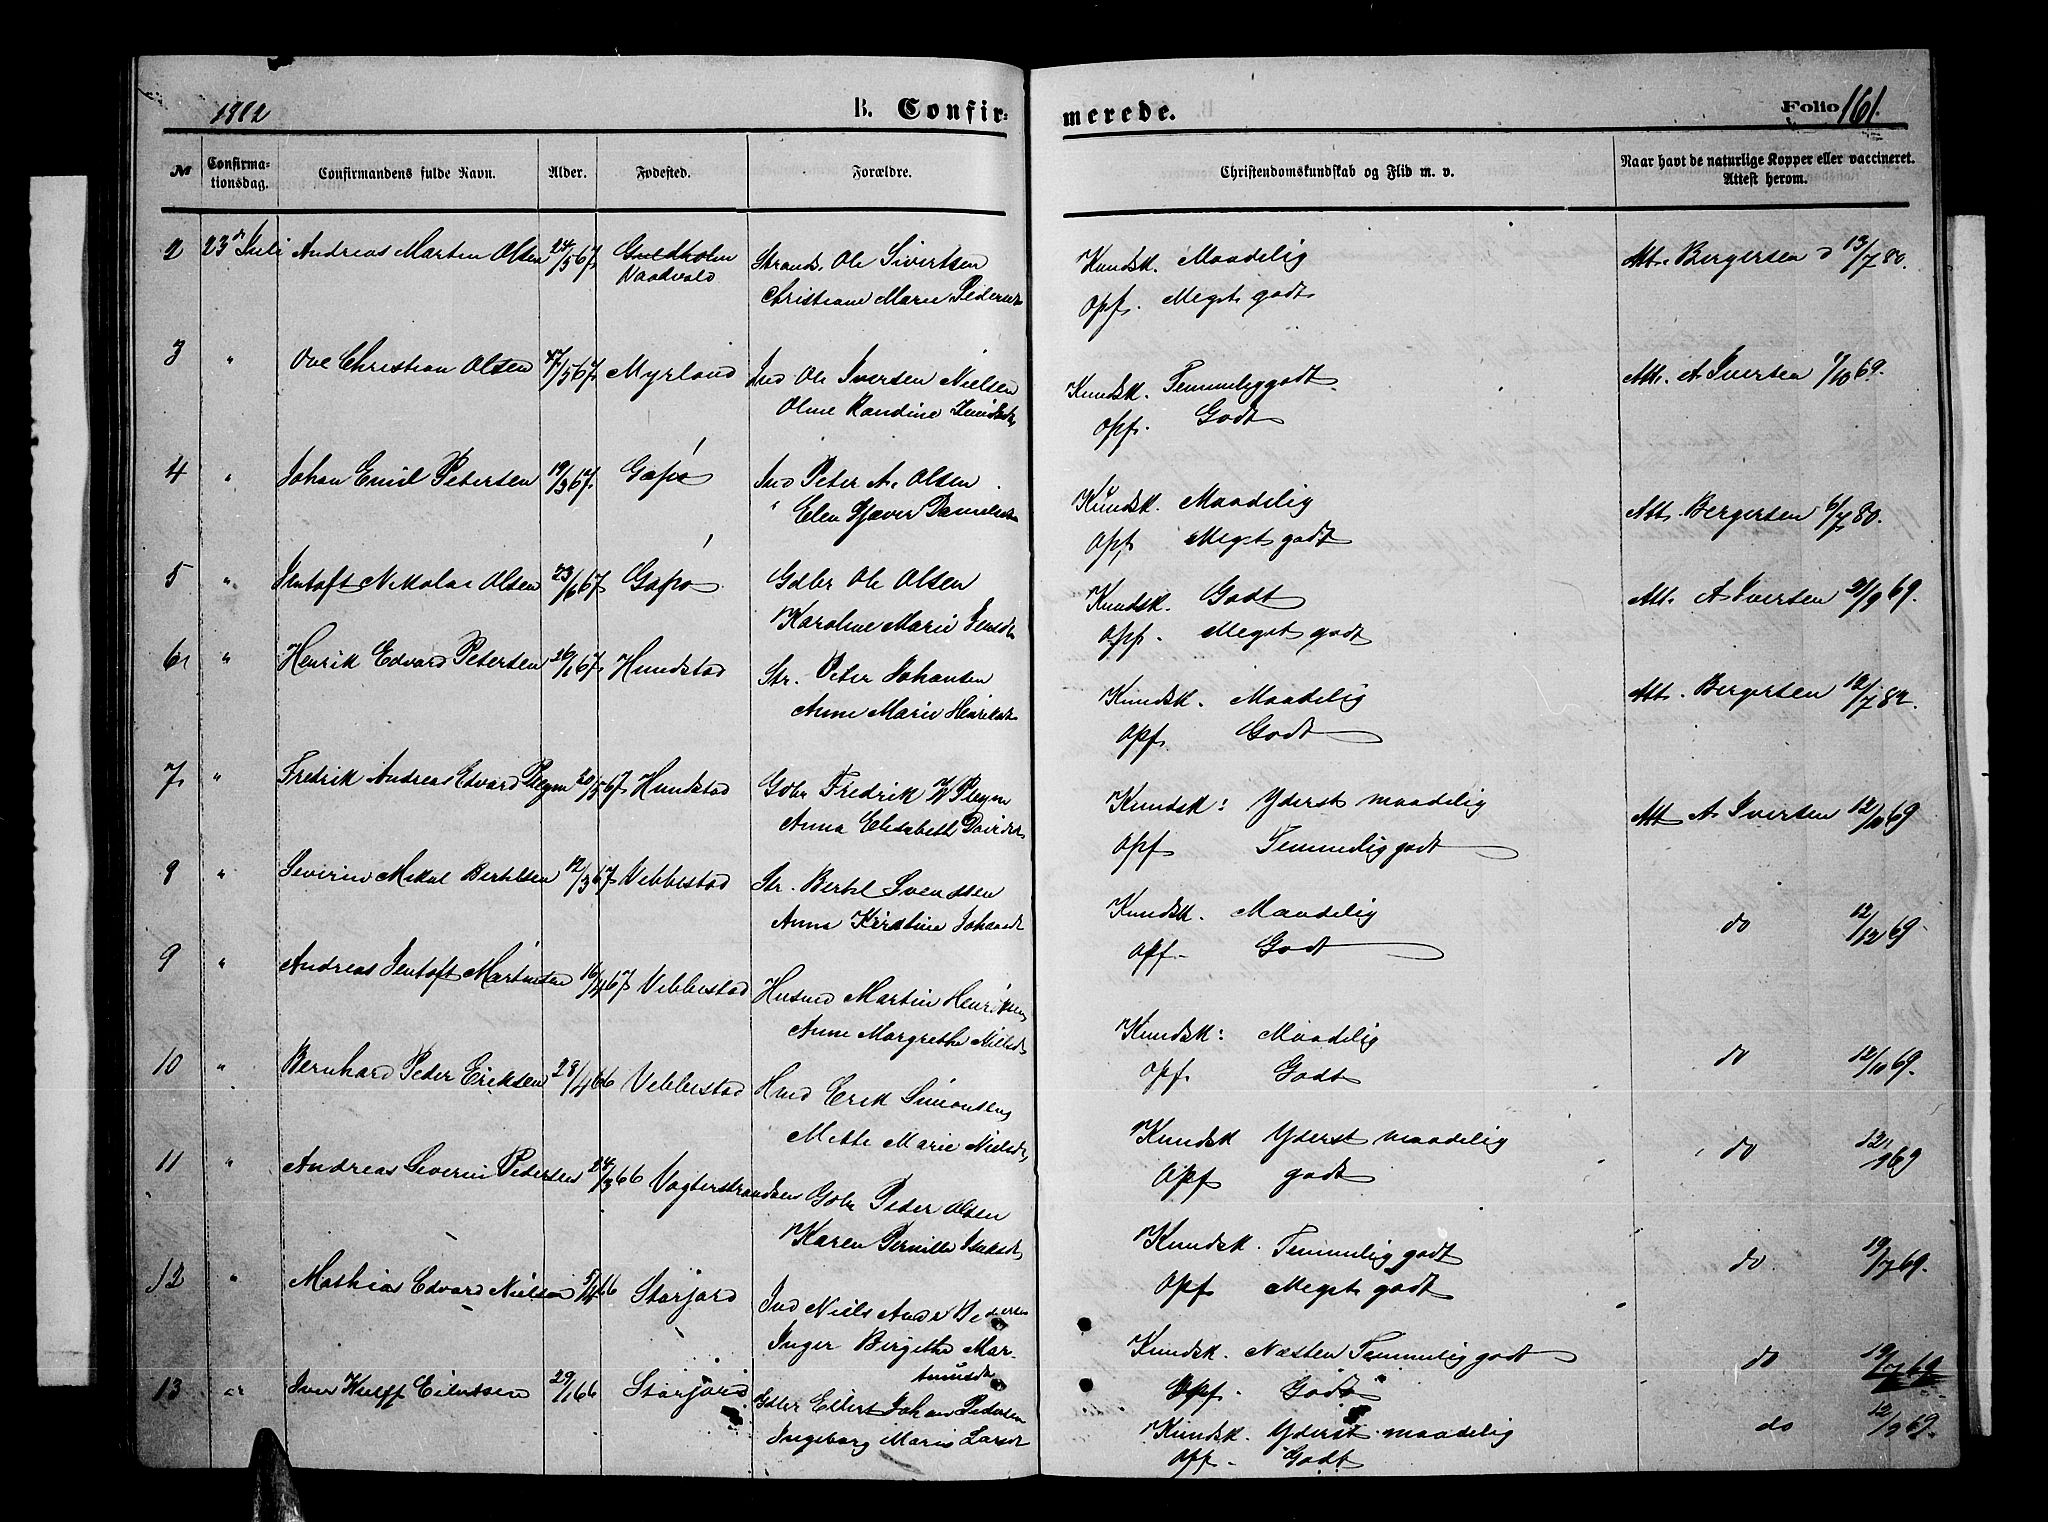 B. Confir-
merede.
Folio 161.
№
Confirma-
tionsdag.
Confirmandens fulde Navn.
Alder.
Fødested.
Forældre.
Christendomskundskab og Flid m. v.
Naar havt de naturlige Kopper eller vaccineret.
Attest herom.
2 23 Juli Andreas Martin Olsen 24/5 67 Guldholm Strands. Ole Sivertsen Kundsk. Maadelig Att. Bergersen d 13/7 80.
Vaadvold Christiane Marie Opf. Meget godt
3 " Ove Christian Olsen /5 67 Myrland Ind Ole Iversen Nielsen Kundsk. Temmeliggodt. Att. A Iversen 1/10 69.
Oline Randine Opf. Godt
4 " Johan Emil Petersen 19/3 67. Gapø Ind Peter A. Olsen Kundsk. Maadelig Att. Bergersen 6/7 80.
" Elen Opf Meget godt
5 " Jentoft Nikolai Olsen 23/6 67 Gapø Gdbr Ole Olsen Kundsk. Godt Att. A Iversen 2/9 69.
Karoline Marie Jensdt Opf. Meget godt
6 " Henrik Edvard Petersen 26/1 67 Hundstad Str. Peter Johansen Kundsk. Maadelig Att. Bergersen 12/7 82.
Anne Marie Henriksdt Opf. Godt
7 " Fredrik Andreas Edvard Pleym 20/5 67 Hundstad Gdbr Fredrik W Pleym Kundsk: Yderst maadelig Att A. Iversen 12/10 69
Anna Elisabeth Opf Temmelig godt
8 " Severin Mikal Bertelsen 12/3 67 Vebbestad Str. Bertel Svendsen Kundsk. Maadelig do 12/12 69
Anna Kirstine Johansdt Opf. Godt
9 " Andreas Jentoft Martinsen 16/4 67 Vebbestad Husmd Martin Henriksen Kundsk: Maadelig do 12/10 69.
Anne Margrethe Nielsdt Opf. Godt
10 " Bernhard Peder Eriksen 28/4 66 Vebbestad Hmd Erik Simonsen Kundsk Yderst maadelig do 12/ 69
Mette Marie Nielsdt Opf godt
11 " Andreas Severin Pedersen 24/3 66 Vogterstranden Gdbr Peder Olsen Kundsk. Temmelig godt do 19/7 69.
Karen Pernille Isaksdt Opf Meget godt
12 " Mathias Edvard Nielsen 5/4 66 Storjord Ind Niels Ander Pedersen Kundsk. Næsten Temmelig godt do 19/7 69
Inger Birgithe Mar- Opf. Godt
tinusdt
13 " Iver Eilertsen 29/1 66 Storjord Gdbr Eilert Johan Pedersen Kundsk. Yderst maadelig do 12/9 69.
Ingeborg Marie Larsdt Opf. Godt